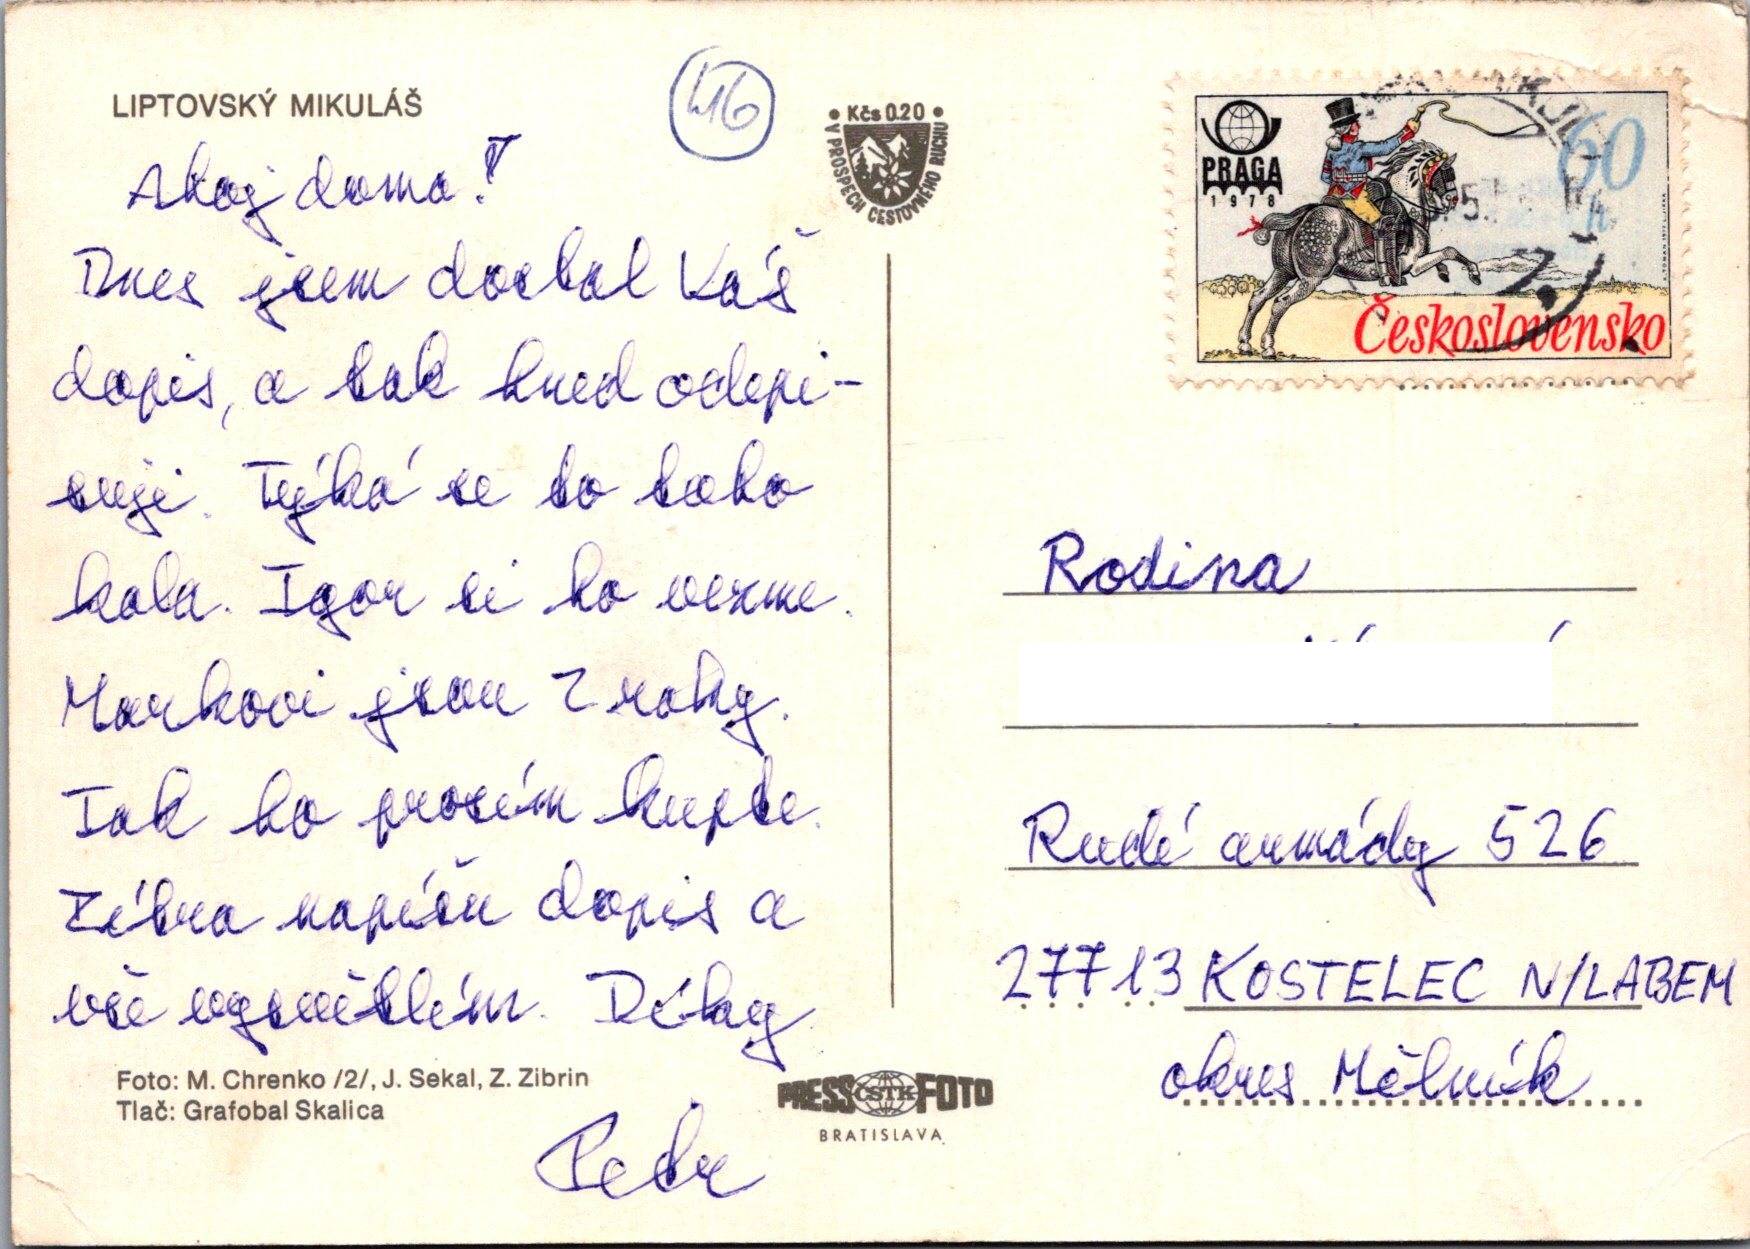 LIPTOVSKÝ MIKULÁŠ
46
• Kčs 0.20 •
V PROSPECH CESTOVNÉHO RUCHU
Ahoj doma!
Dnes jsem dostal Váš
dopis, a tak hned odepi-
suji. Týká se to toho
kola. Igor si ho vezme.
Markovi jsou 2 roky.
Tak ho prosím kupte.
Zítra napíšu dopis a
vše vysvětlím. Díky
Petr
Foto: M. Chrenko /2/, J. Sekal, Z. Zibrin
Tlač: Grafobal Skalica
PRESS ČSTK FOTO
BRATISLAVA
PRAGA
1978
60
h
Československo
Rodina
Rudé armády 526
27713 KOSTELEC N/LABEM
okres Mělník